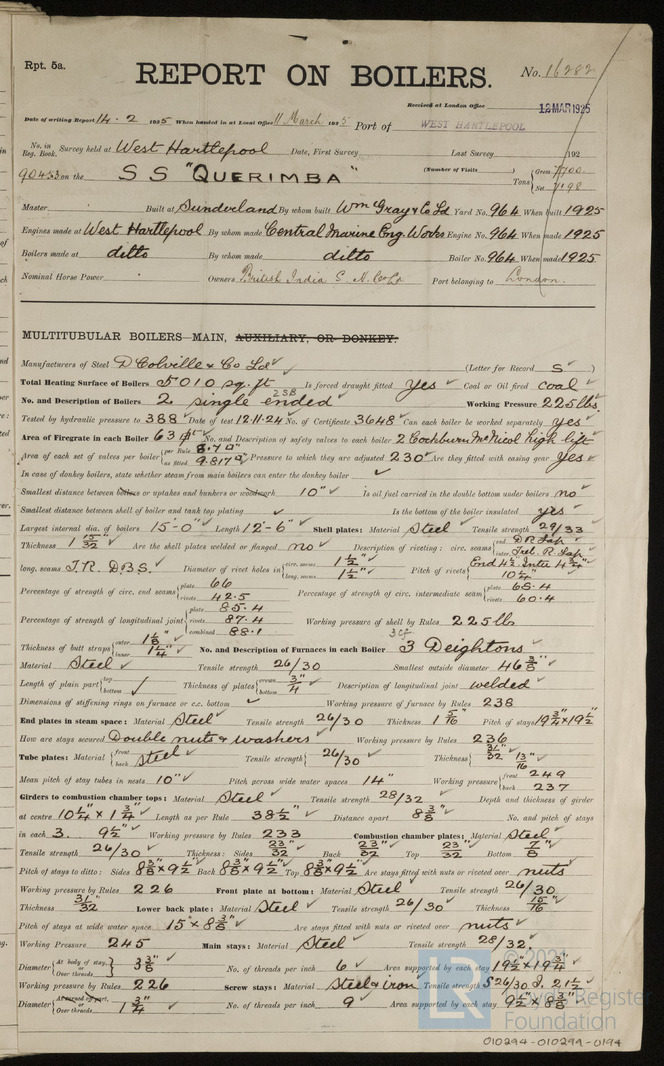 Rpt. 5a.
REPORT ON BOILERS.
No. 16282
Received at London Office 12 MAR 1925
Date of writing Report 14.2 1925 When handed in at Local Office 11 March 1925 Port of WEST HARTLEPOOL
No. in Reg. Book. Survey held at West Hartlepool Date, First Survey Last Survey 192
90433 on the SS "QUERIMBA" (Number of Visits ) Tons { Gross 7700 Net 7198
Master Built at Sunderland By whom built Wm Gray & Co Ld Yard No. 964 When built 1925
Engines made at West Hartlepool By whom made Central Marine Eng. Works Engine No. 964 When made 1925
Boilers made at ditto By whom made ditto Boiler No. 964 When made 1925
Nominal Horse Power Owners British India S. N. Co Ld Port belonging to London.
MULTITUBULAR BOILERS—MAIN, AUXILIARY, OR DONKEY.
Manufacturers of Steel D Colville & Co Ld (Letter for Record S )
Total Heating Surface of Boilers 5010 sq. ft Is forced draught fitted Yes Coal or Oil fired coal
No. and Description of Boilers 2 single ended 2SB Working Pressure 225 lbs
Tested by hydraulic pressure to 388 Date of test 12.11.24 No. of Certificate 3648 Can each boiler be worked separately yes
Area of Firegrate in each Boiler 63 No. and Description of safety valves to each boiler 2 Cockburn McNicol high lift
Area of each set of valves per boiler { per Rule 8.7 as fitted 9.817 Pressure to which they are adjusted 230 Are they fitted with easing gear yes
In case of donkey boilers, state whether steam from main boilers can enter the donkey boiler
Smallest distance between boilers or uptakes and bunkers or woodwork 10" Is oil fuel carried in the double bottom under boilers no
Smallest distance between shell of boiler and tank top plating Is the bottom of the boiler insulated yes
Largest internal dia. of boilers 15'-0" Length 12'-6" Shell plates: Material Steel Tensile strength 29/33
Thickness 1 15/32 Are the shell plates welded or flanged no Description of riveting: circ. seams { end D R Lap inter. Treb. R. Lap
long. seams T.R. D.B.S. Diameter of rivet holes in { circ. seams 1 1/2" long. seams 1 1/2" Pitch of rivets { End 4 1/2 Inter 4 3/4" 10 1/4"
Percentage of strength of circ. end seams { plate 66 rivets 42.5 Percentage of strength of circ. intermediate seam { plate 68.4 rivets 60.4
Percentage of strength of longitudinal joint { plate 85.4 rivets 87.4 combined 88.1 Working pressure of shell by Rules 225 lb
Thickness of butt straps { outer 1 1/8" inner 1 1/4" No. and Description of Furnaces in each Boiler 3 Deightons 3 cf
Material Steel Tensile strength 26/30 Smallest outside diameter 46 3/8"
Length of plain part { top bottom Thickness of plates { crown bottom 3/4" Description of longitudinal joint welded
Dimensions of stiffening rings on furnace or c.c. bottom Working pressure of furnace by Rules 238
End plates in steam space: Material Steel Tensile strength 26/30 Thickness 1 5/16" Pitch of stays 19 3/4" x 19 1/2"
How are stays secured Double nuts & washers Working pressure by Rules 236
Tube plates: Material { front back steel Tensile strength { 26/30 Thickness { 31/32" 13/16"
Mean pitch of stay tubes in nests 10" Pitch across wide water spaces 14" Working pressure { front 249 back 237
Girders to combustion chamber tops: Material Steel Tensile strength 28/32 Depth and thickness of girder
at centre 10 1/4" x 1 3/4" Length as per Rule 38 1/2" Distance apart 8 3/8" No. and pitch of stays
in each 3. 9 1/2" Working pressure by Rules 233 Combustion chamber plates: Material Steel
Tensile strength 26/30 Thickness: Sides 23/32" Back 23/32" Top 23/32" Bottom 7/8"
Pitch of stays to ditto: Sides 8 3/8" x 9 1/2" Back 8 3/8" x 9 1/2" Top 8 3/8" x 9 1/2" Are stays fitted with nuts or riveted over nuts
Working pressure by Rules 226 Front plate at bottom: Material Steel Tensile strength 26/30
Thickness 31/32" Lower back plate: Material Steel Tensile strength 26/30 Thickness 15/16"
Pitch of stays at wide water space 15" x 8 3/8" Are stays fitted with nuts or riveted over nuts
Working Pressure 245 Main stays: Material Steel Tensile strength 28/32.
Diameter { At body of stay, or Over threads 3 3/8" No. of threads per inch 6 Area supported by each stay 19 1/2" x 19 3/4"
Working pressure by Rules 226 Screw stays: Material Steel & iron Tensile strength S 26/30 I. 21 1/2
Diameter { At turned off part, or Over threads 1 3/4" No. of threads per inch 9 Area supported by each stay 9 1/2" x 8 3/8"
© 2021
LR
Lloyd's Register
Foundation
010294-010299-0194